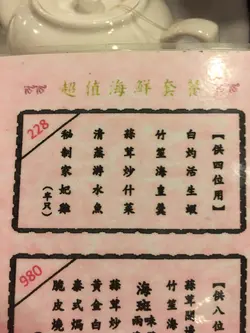 超值海鮮套餐
【供四位用】
白灼活生蝦
竹笙海皇羹
蒜茸炒什菜
清蒸游水魚
秘制家妃雞（半只）
228
【供八位
蒜茸開邊
竹笙海
海斑兩味
蒜茸炒
黃金白
泰式焗
脆皮燒
980